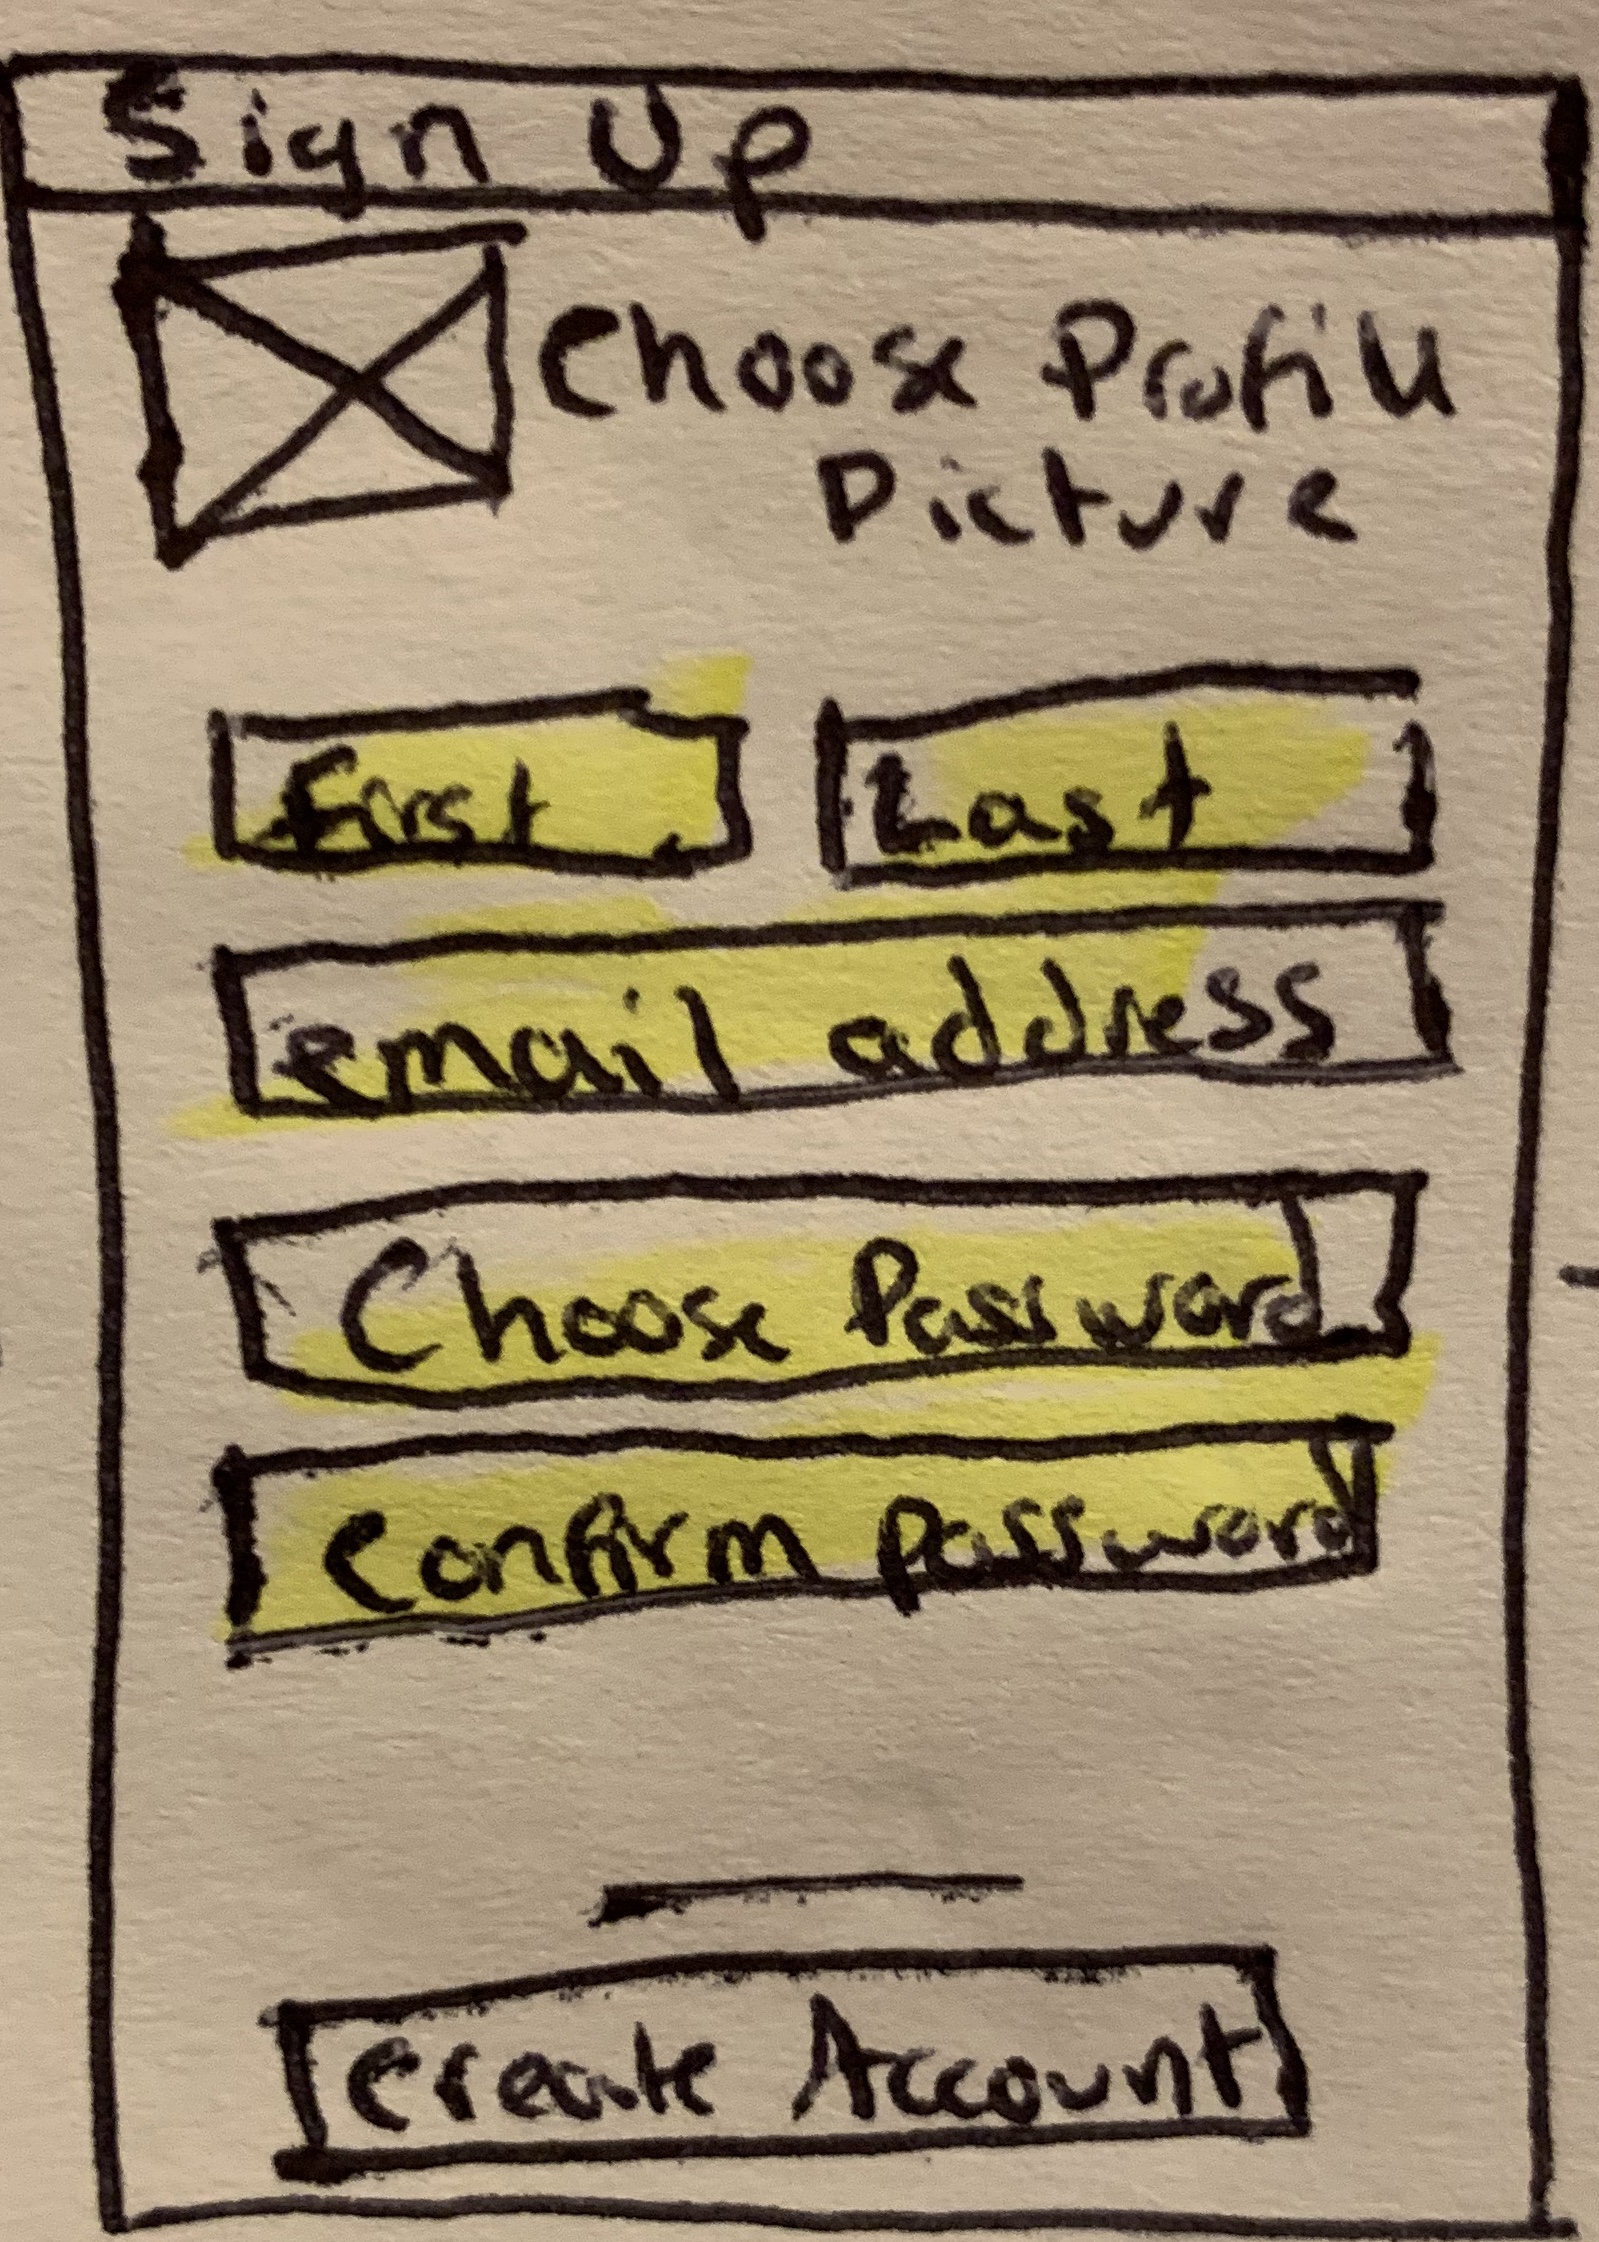 Sign Up
Choose Profile
Picture
First Last
email address
Choose Password
Confirm password
Create Account